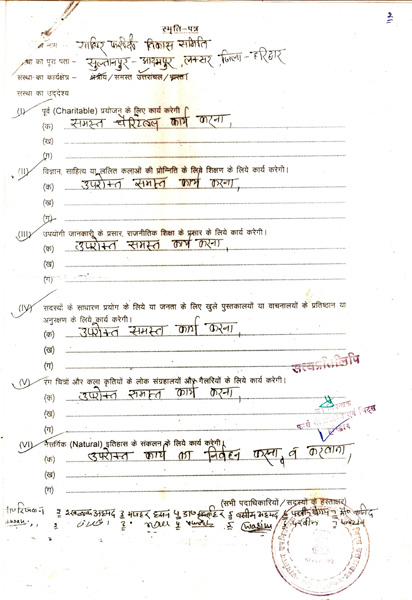 2
स्मृति-पत्र
नाम - साबिर फरीदी विकास समिति
स्था का पूरा पता - सुल्तानपुर - आदमपुर, लक्सर जिला - हरिद्वार
संस्था का कार्यक्षेत्र - क्षेत्रीय/समस्त उत्तरांचल/
संस्था का उद्देश्य
(I) पूर्व (Charitable) प्रयोजन के लिए कार्य करेगी
(क) समस्त चैरिटेबल कार्य करना,
(ख)
(ग)
(II) विज्ञान, साहित्य या ललित कलाओं की प्रोन्नित के लिये शिक्षण के लिये कार्य करेगी।
(क) उपरोक्त समस्त कार्य करना,
(ख)
(ग)
(III) उपयोगी जानकारी के प्रसार, राजनीतिक शिक्षा के प्रसार के लिये कार्य करेगी।
(क) उपरोक्त समस्त कार्य करना,
(ख)
(ग)
(IV) सदस्यों के साधारण प्रयोग के लिये या जनता के लिए खुले पुस्तकालयों या वाचनालयों के प्रतिष्ठान या
अनुरक्षण के लिये कार्य करेगी।
(क) उपरोक्त समस्त कार्य करना,
(ख)
(ग)
सत्यप्रतिलिपि
(V) रंग चित्रों और कला कृतियों के लोक संग्रहालयों और गैलरियों के लिये कार्य करेगी।
(क) उपरोक्त समस्त कार्य करना,
(ख)
(ग)
(VI) नैसर्गिक (Natural) इतिहास के संकलन के लिये कार्य करेगी।
(क) उपरोक्त कार्य का निर्वहन करना, व करवाना,
(ख)
(ग)
(सभी पदाधिकारियों / सदस्यों के हस्ताक्षर)